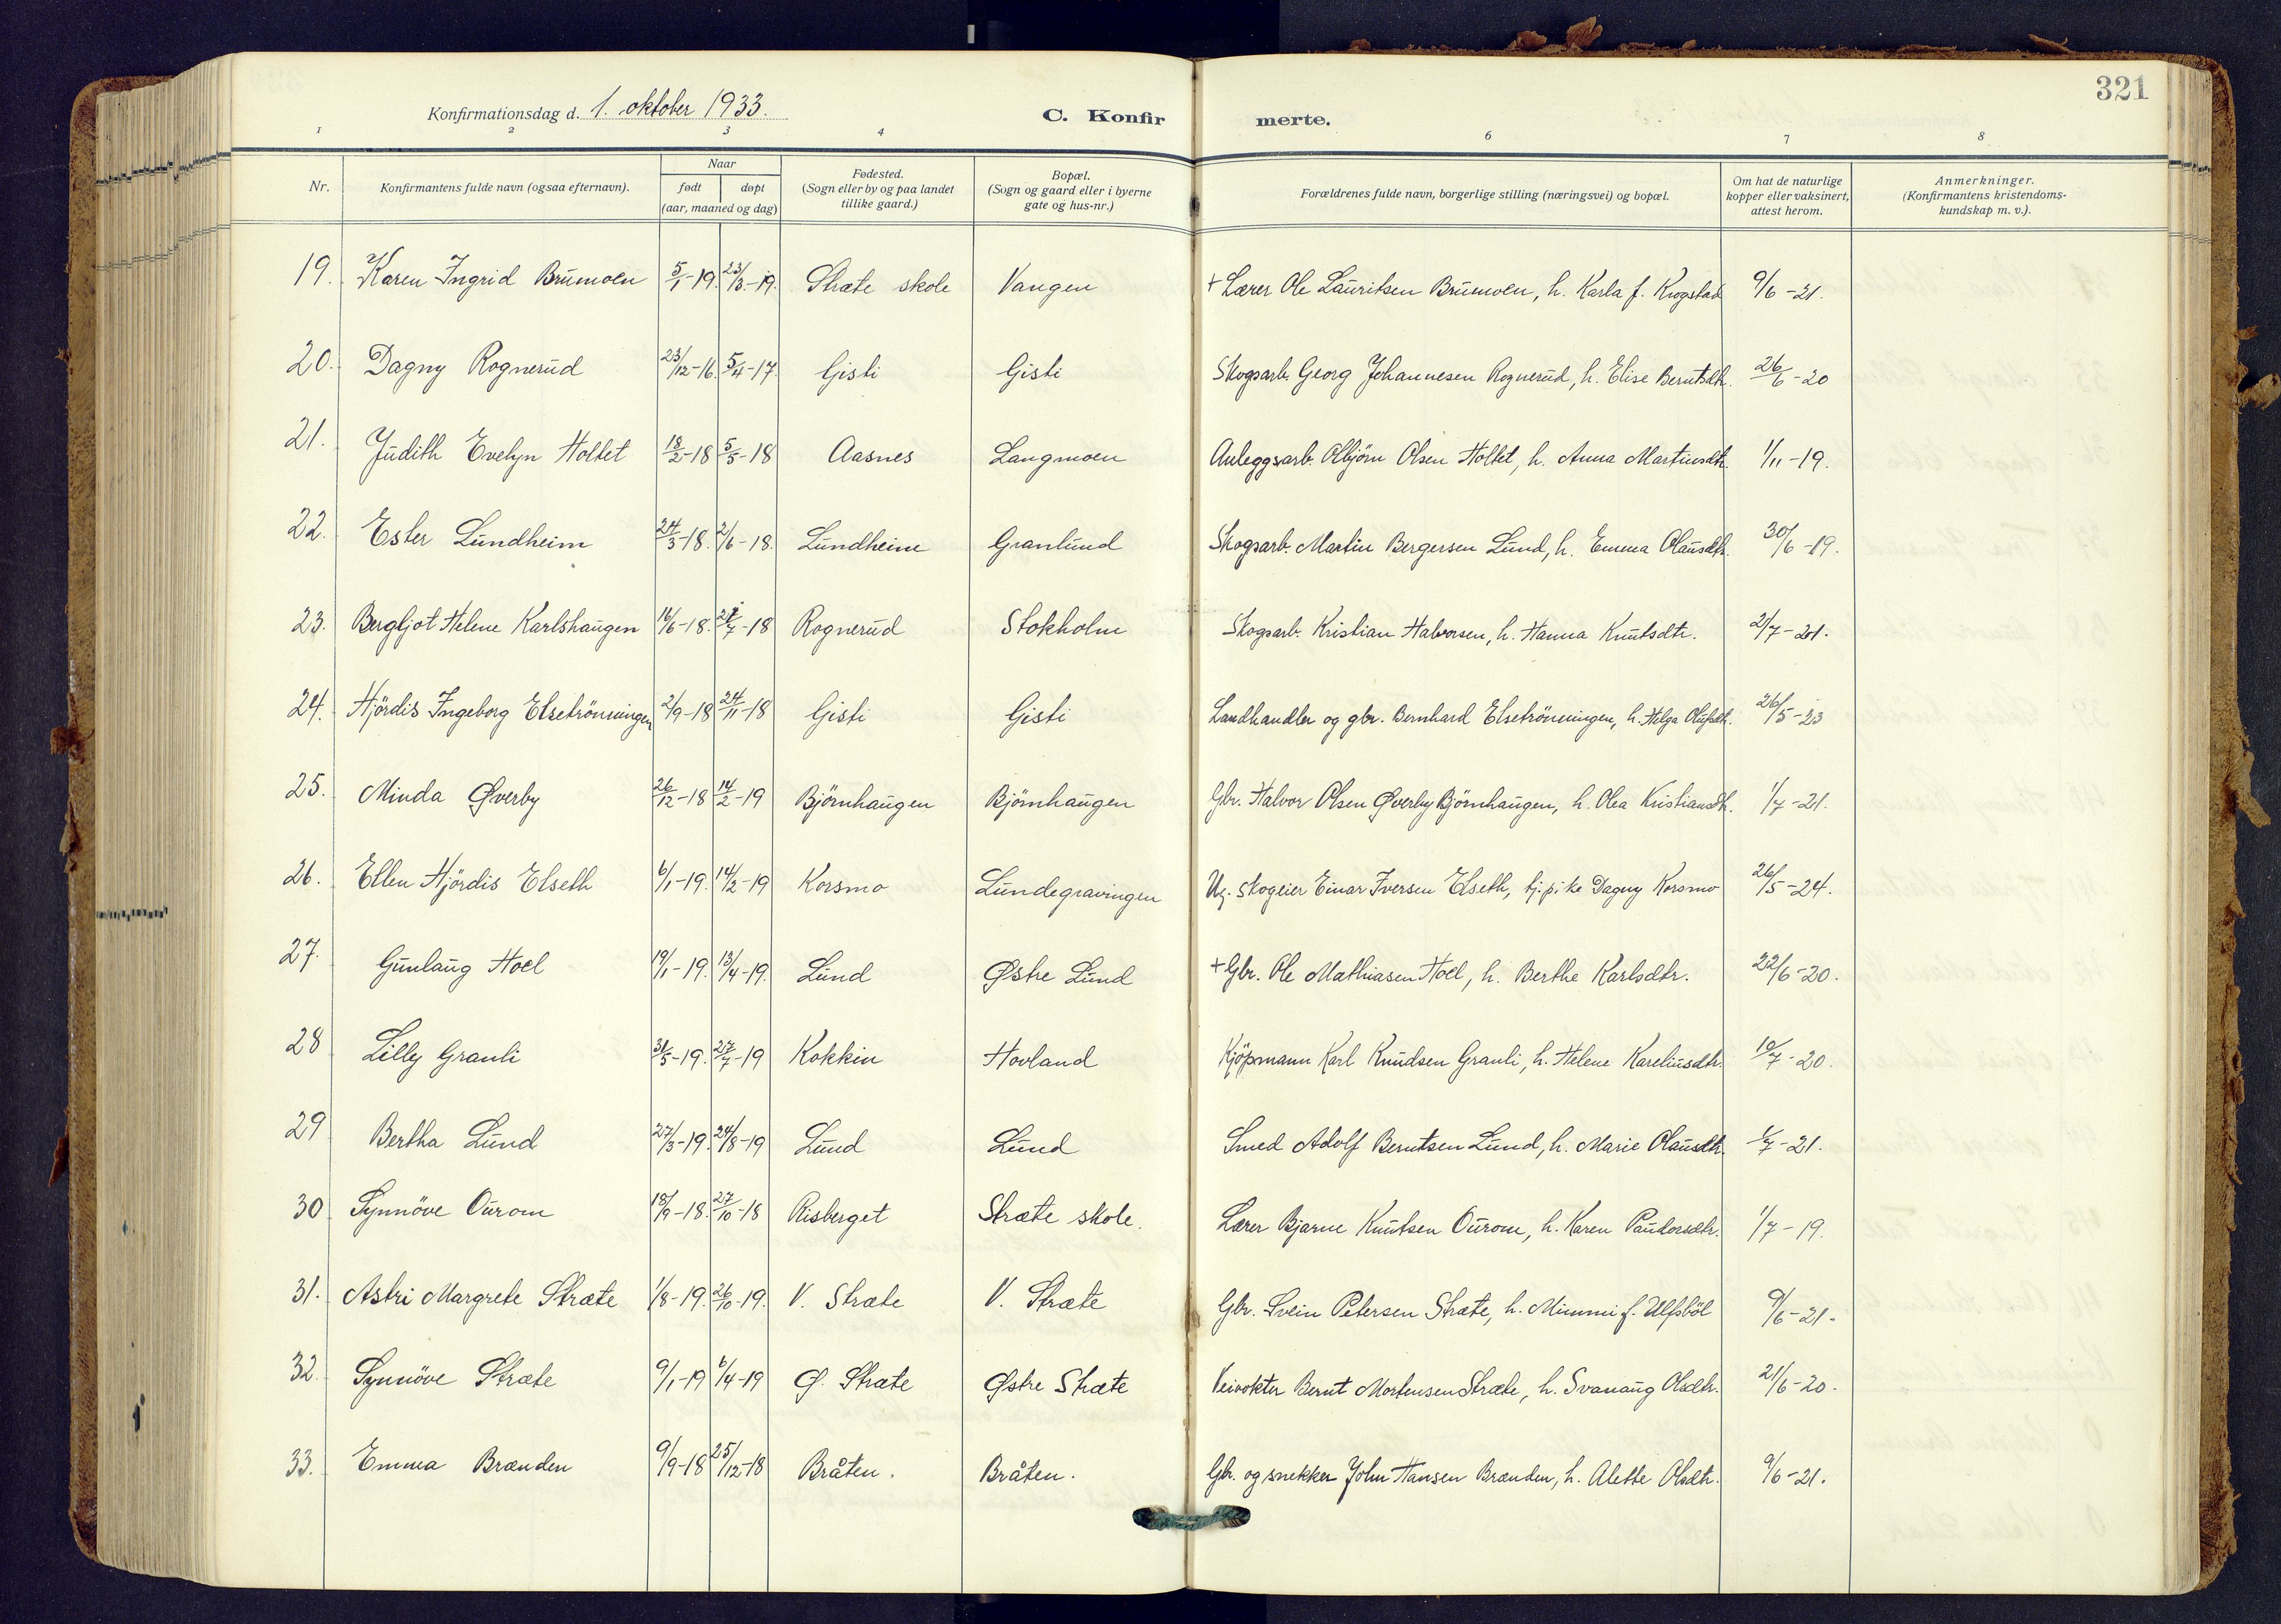 321
Konfirmationsdag d. 1. oktober 1933. C. Konfir merte.
1 2 3 4 6 7 8
Nr. Konfirmantens fulde navn (ogsaa efternavn). Naar født døpt (aar, maaned og dag) Fødested. (Sogn eller by og paa landet tillike gaard.) Bopæl. (Sogn og gaard eller i byerne gate og hus-nr.) Forældrenes fulde navn, borgerlige stilling (næringsvei) og bopæl. Om hat de naturlige kopper eller vaksinert, attest herom. Anmerkninger. (Konfirmantens kristendoms- kundskap m. v.).
19. Karen Ingrid Brumoen 5/1-19. 23/3-19. Stræte skole Vangen + Lærer Ole Lauritsen Brumoen, h. Karla f. Krogstad 9/6-21.
20. Dagny Rognerud 23/12-16. 5/4-17. Gisti Gisti Skogsarb. Georg Johannesen Rognerud, h. Elise Berntsdtr. 26/6-20
21. Judith Evelyn Holtet 18/2-18 5/5-18 Aasnes Langmoen Anleggsarb. Albjörn Olsen Holtet, h. Anna Martinsdtr. 1/11-19.
22. Ester Lundheim 24/3-18. 2/6-18. Lundheim Granlund Skogsarb. Martin Bergersen Lund, h. Emma Olausdtr. 30/6-19.
23. Bergljot Helene Karlshaugen 16/6-18. /7-18 Rognerud Stokholm Skogsarb. Kristian Halvorsen, h. Hanna Knutsdtr. 2/7-21.
24. Hjördis Ingeborg Elsetrönningen 2/9-18 24/11-18 Gisti Gisti Landhandler og gbr. Bernhard Elsetrönningen, h. Helga Olufsdtr. 26/5-23
25. Minda Øverby 26/12-18 14/2-19 Björnhaugen Björnhaugen Gbr. Halvor Olsen Øverby Björnhaugen, h. Olea Kristiansdtr. 1/7-21.
26. Ellen Hjördis Elseth 6/1-19. 14/2-19 Korsmo Lundegravingen Ug. skogeier Einar Iversen Elseth, tj. pike Dagny Korsmo 26/5-24.
27. Gunlaug Hoel 19/1-19. 13/4-19. Lund Østre Lund + Gbr. Ole Mathiasen Hoel, h. Berthe Karlsdtr. 22/6-20.
28 Lilly Granli 31/5-19. 27/7-19 Kokkin Hovland Kjöpmann Karl Knudsen Granli, h. Helene Kareliusdtr. 10/7-20.
29 Bertha Lund 27/3-19. 24/8-19 Lund Lund Smed Adolf Berntsen Lund, h. Marie Olausdtr. 1/7-21.
30 Synnöve Ourom 18/9-18. 27/10-18 Risberget Stræte skole. Lærer Bjarne Knutsen Ourom, h. Karen 1/7-19.
31. Astri Margrete Stræte 1/8-19. 26/10-19. V. Stræte V. Stræte Gbr. Svein Petersen Stræte, h. Mimmi f. Ulfsböl 9/6-21.
32. Synnöve Stræte 9/1-19 6/4-19 Ø. Stræte Østre Stræte Veivokter Bernt Mortensen Stræte, h. Svanaug Olsdtr. 21/6-20.
33. Emma Brænden 9/9-18 25/12-18 Bråten. Bråten. Gbr. og snekker John Hansen Brænden, h. Alette Olsdtr. 9/6-21.